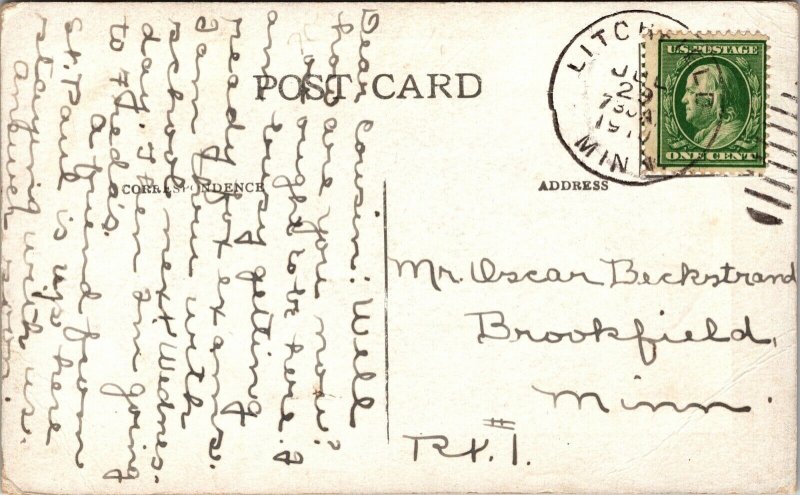 POST CARD
CORRESPONDENCE
ADDRESS
LITCHFIELD
29
MINN
U.S. POSTAGE
ONE CENT
Dear Cousin: Well
how are you now?
You ought to be here. I
am busy getting
ready for exams.
I am thru with
school next Wednes-
day. Then I'm going
to Fred's.
A friend from
St. Paul is up here
staying with us.
Answer soon.
Mr. Oscar Beckstrand
Brookfield,
Minn.
R.#1.